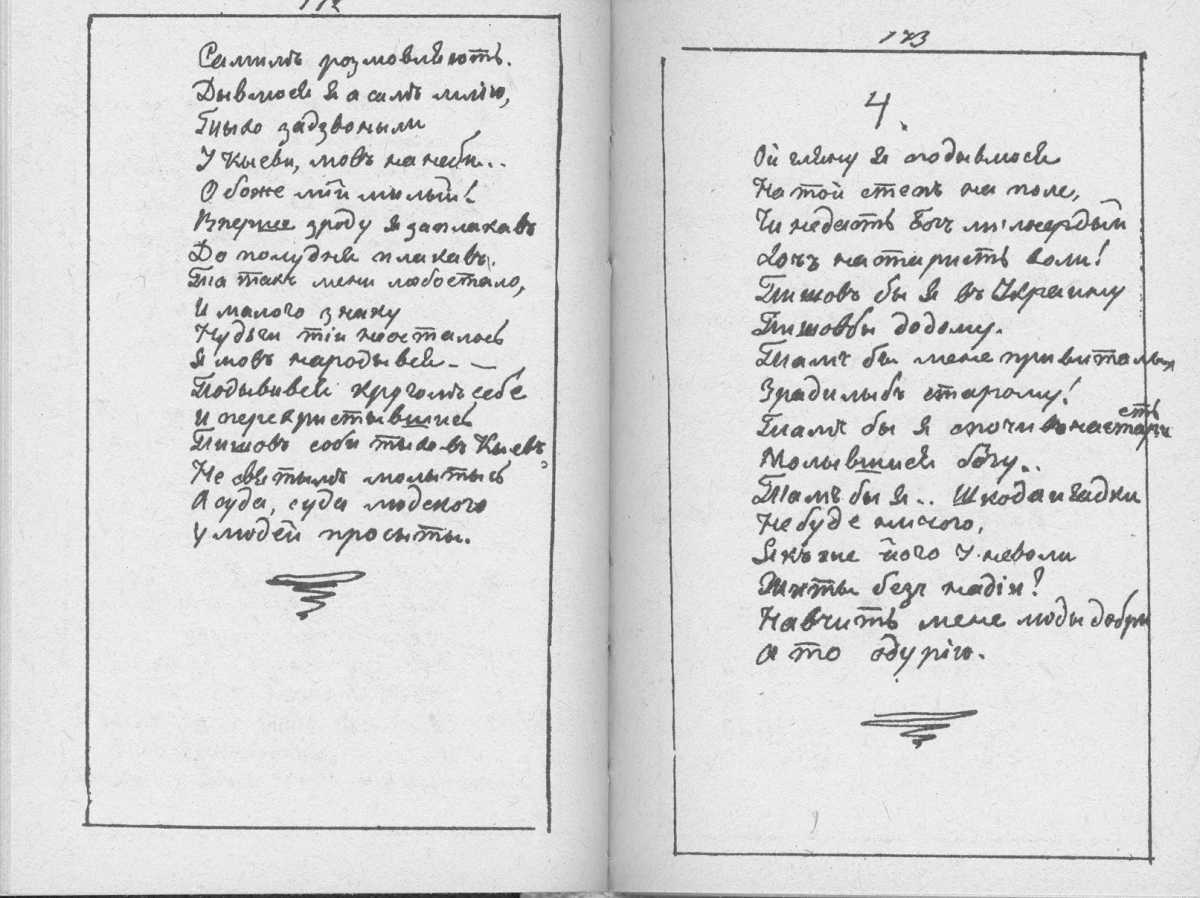 172
Самимъ розмовляють.
Дывлюся я а самъ млію,
Тыхо задзвоныли
У Кыеви, мовъ на неби..
О боже мій мылый!
Вперше зроду я заплакавъ
До полудня плакавъ.
Та такъ мени любо стало,
И малого знаку
Нудьги тіи не осталось
Я мовъ народывся - —
Подывився кругомъ себе
И перекристывшись
Пишовъ соби тыхо въ Кыевъ
Не святымъ молытысь
А суда, суда людского
у людей просыты.
173
4.
Ой гляну я подывлюся
На той степъ на поле,
Чи недасть Богъ милосердый
Хочъ на старисть воли!
Пишовъ бы я въ Украину
Пишовбы додому.
Тамъ бы мене привиталы
Зрадилыбъ старому!
Тамъ бы я спочивъ на старість
Молывшися богу..
Тамъ бы я.. Шкода и гадки
Небуде ничого,
Якъ же його у неволи
Жыты безъ надіи?
Навчить мене люды добри
А то одурію.